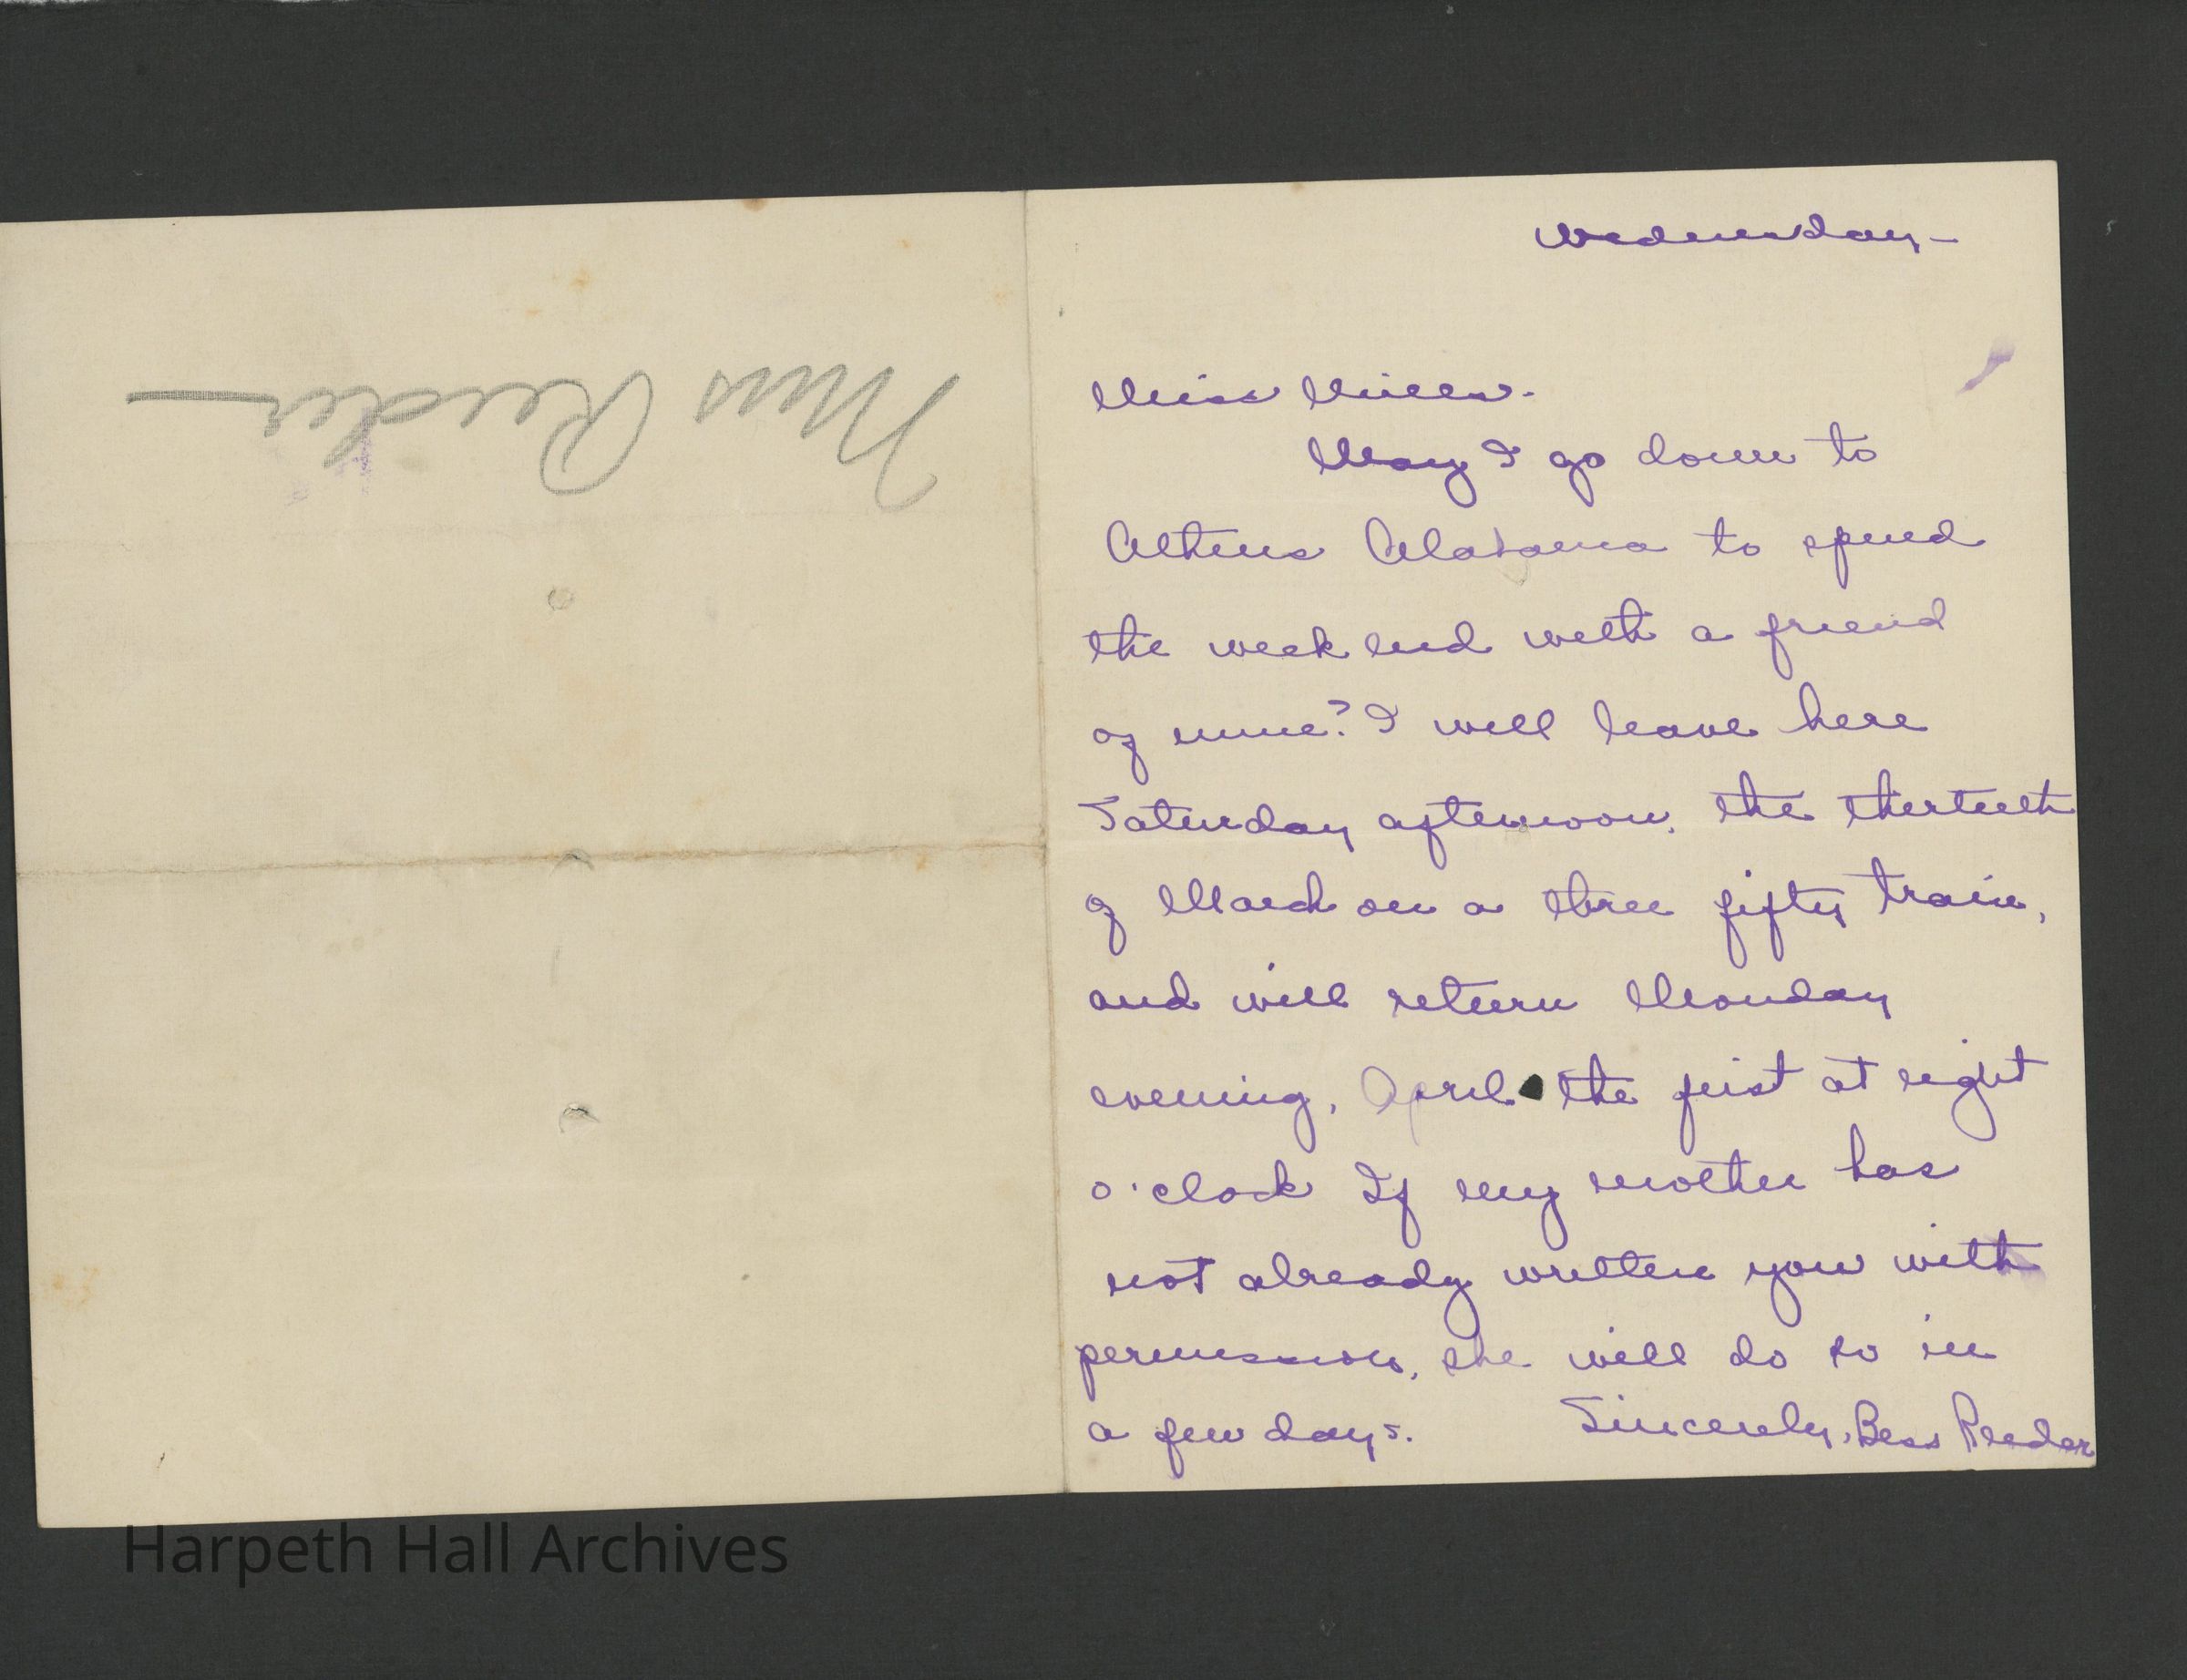 Miss Reeder
Wednesday -
Miss Mills.
May I go down to
Athens Alabama to spend
the week end with a friend
of mine? I will leave here
Saturday afternoon, the thirteeth
of March on a three fifty train,
and will return Monday
evening, April the first at eight
o'clock If my mother has
not already written you with
permission, she will do so in
a few days. Sincerely, Bess Reeder
Harpeth Hall Archives